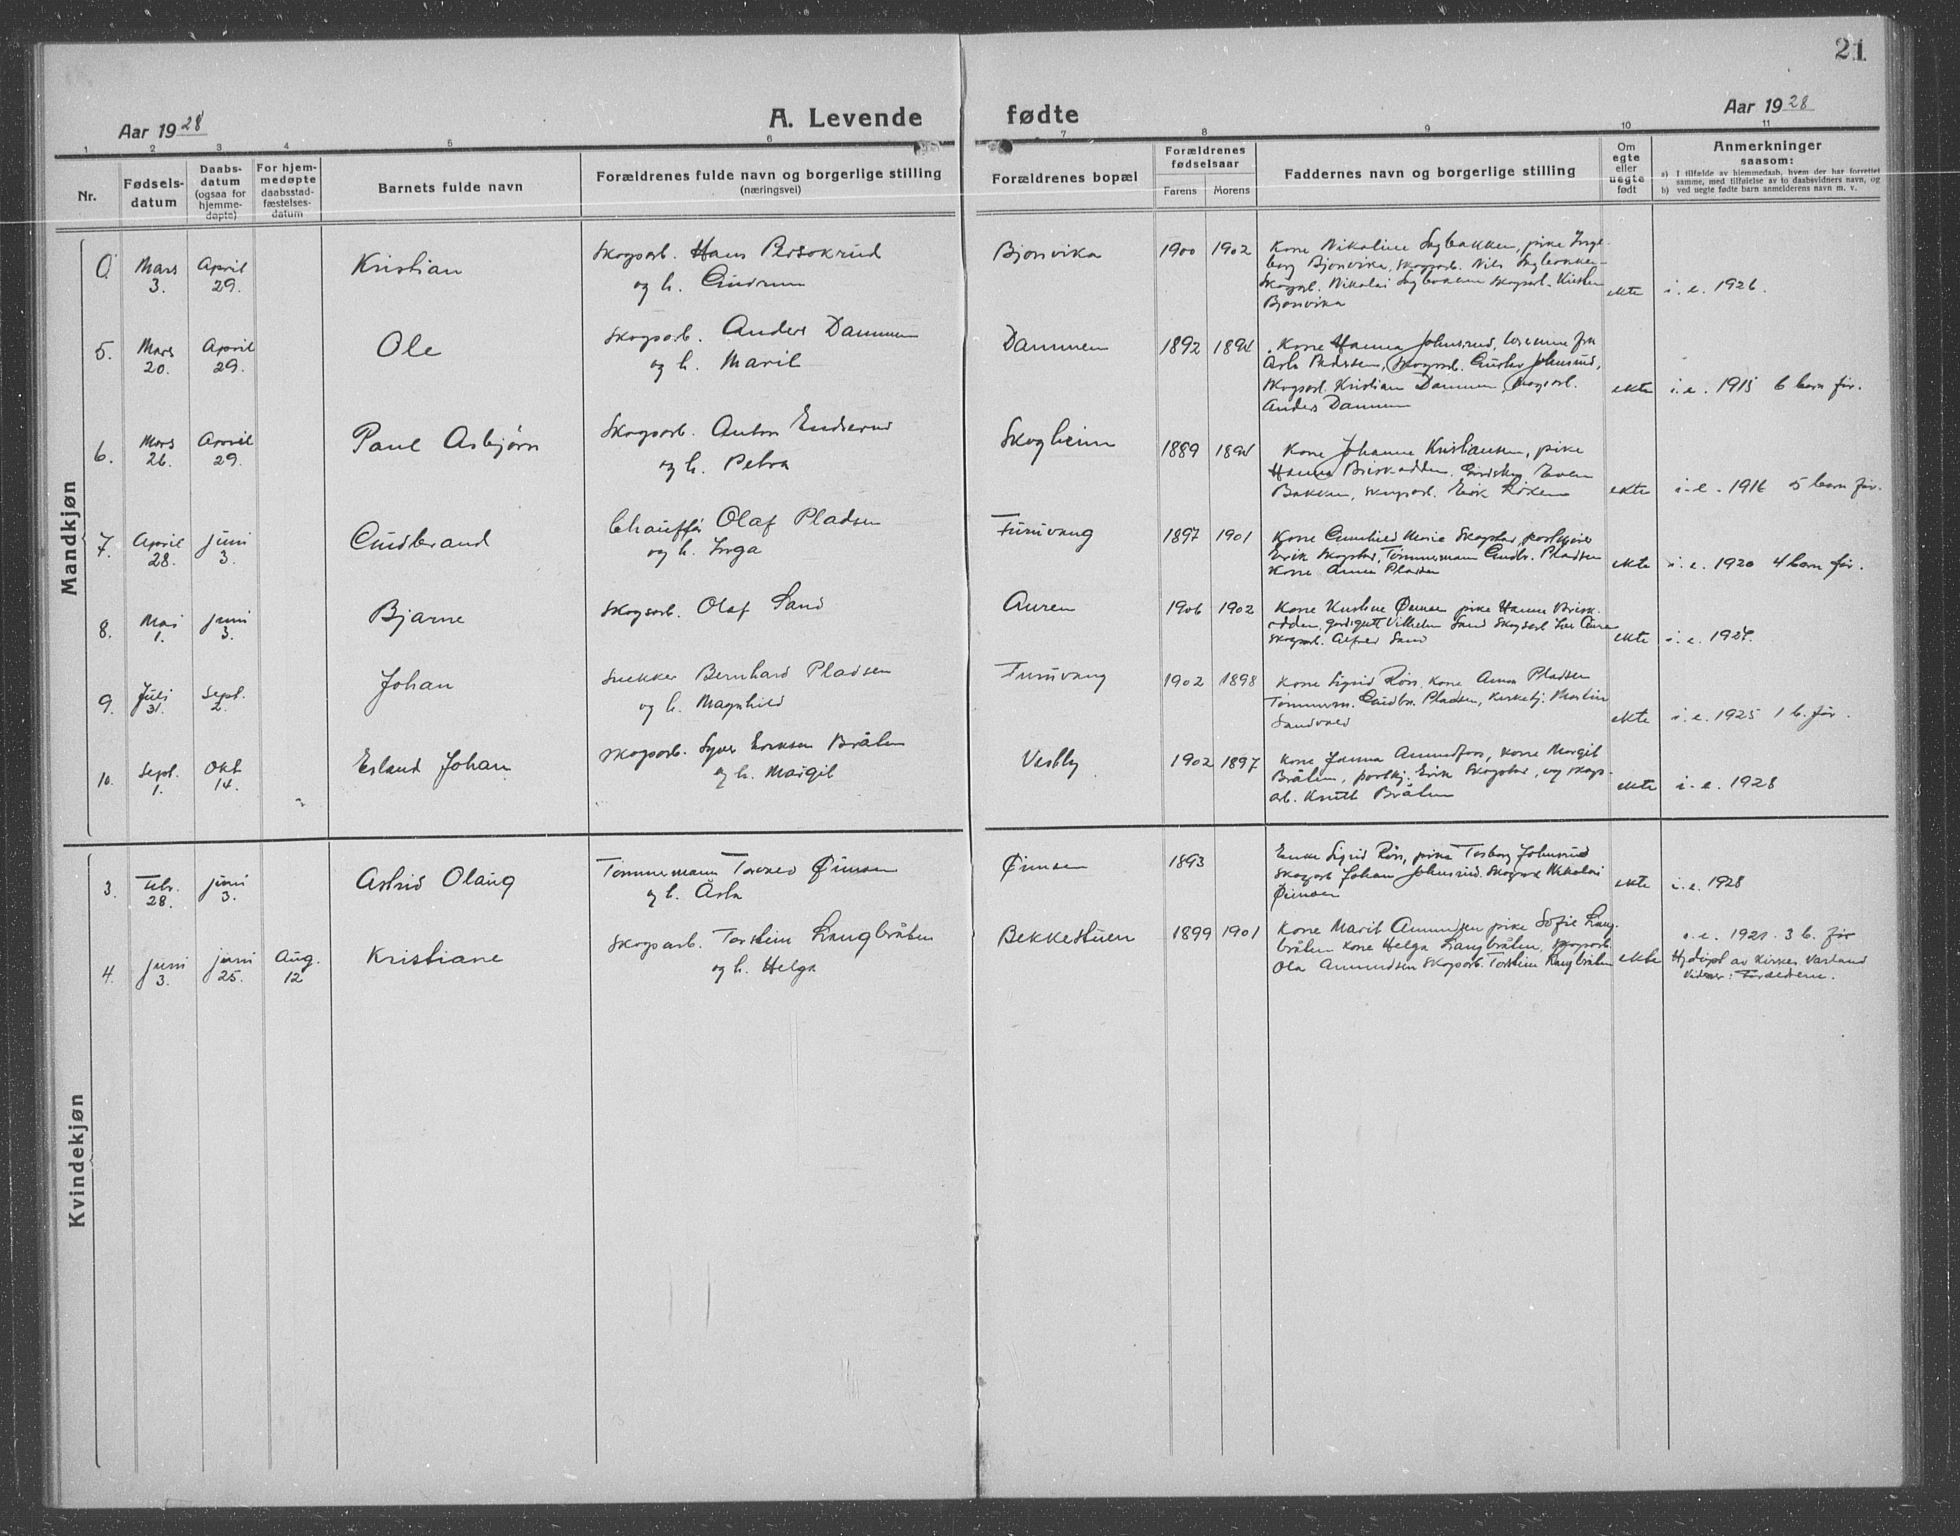 21
Aar 1928
A. Levende fødte
Aar 1928
1 2 3 4 5 6 7 8 9 10 11
Nr.
Fødsels-
datum
Daabs-
datum
(ogsaa for
hjemme-
døpte)
For hjem-
medøpte
daabsstad-
fæstelses-
datum
Barnets fulde navn
Forældrenes fulde navn og borgerlige stilling
(næringsvei)
Forældrenes bopæl
Forældrenes
fødselsaar
Farens Morens
Faddernes navn og borgerlige stilling
Om
egte
eller
uegte
født
Anmerkninger
saasom:
a) I tilfælde av hjemmedaab, hvem der har forrettet
samme, med tilføielse av to daabsvidners navn, og
b) ved uegte fødte barn anmelderens navn m. v.
Mandkjøn
Mars
3.
April
29.
Kristian
Skogsarb. Hans
og h. Gudrun
Bjørvika
1900 1902
Kone Nikoline Sagbakken, pike Inge-
borg Bjørvika, skogsarb. Nils Sagbakken
Skogsarb. Nikolai Sagbakken skogsarb. Kristen
Bjørvika
ekte
i. e. 1926.
5.
Mars
20.
April
29.
Ole
Skogsarb. Anders Dammen
og h. Marit
Dammen
1892
Kone Hanna Johnsrud,
Skogsarb. Gustav Johnsrud,
Skogsarb. Kristian Dammen, skogsarb.
Anders Dammen
ekte
i. e. 1915 6 barn før.
6.
Mars
26.
April
29.
Paul Asbjørn
Skogsarb. Anton Endserud
og h. Petra
Skogheim
1889
Kone Johanne Kristiansen, pike
Hanna Briskodden, Even
Bakken, skogsarb. Erik
ekte
i. e. 1916 5 barn før.
7.
April
28.
juni
3.
Gudbrand
Chauffør Olaf Pladsen
og h. Inga
Furuvang
1897 1901
Kone Gunhild Marie Skogstad,
Erik Skogstad, Tømmermann Gudbr. Pladsen
Kone Anna Pladsen
ekte
i. e. 1920 4 barn før.
8.
Mai
1.
juni
3.
Bjarne
Skogsarb. Olaf Sand
Auren
1906 1902
Kone Kristine Øimoen pike Hanna Brisk-
odden, gardsgutt Vilhelm Sand Skogsarb
Skogsarb. Alfred Sand
ekte
9.
Juli
31.
Sept.
2.
Johan
Snekker Bernhard Pladsen
og h. Magnhild
Furuvang
1902 1898
Kone Sigrid Røis, Kone Anna Pladsen
Tømmerm. Gudbr. Pladsen, Kirketj. Martin
Sandvold
ekte
i. e. 1925 1 b. før.
10.
Sept.
1.
Okt
14.
Erland Johan
Skogsarb. Syver Eriksen Bråten
og h. Margit
Vestby
1902 1897
Kone Janna Amundfoss, kone Margit
Bråten, Erik Skogstad, og skogs-
arb. Knut Bråten
ekte
i. e. 1928
Kvindekjøn
3.
Febr.
28.
juni
3.
Astrid Olaug
Tømmermann Torvald Øimoen
og h. Asta
Øimoen
1893
Enke Sigrid Røis, pike Torborg Johnsrud
Skogsarb Johan Johnsrud. Skogsarb Nikolai
Øimoen
ekte
i. e. 1928
4.
juni
3.
juni
25.
Aug.
12
Kristiane
Skogsarb. Torstein Langbråten
og h. Helga
Bekkestuen
1899 1901
Kone Marit Amundsen pike Sofie Lang-
bråten kone Helga Langbråten, skogsarb.
Ola Amundsen skogsarb. Torstein Langbråten
ekte
i. e. 1921. 3 b. før
Hj.døpt av
Vidner: Forældrene.